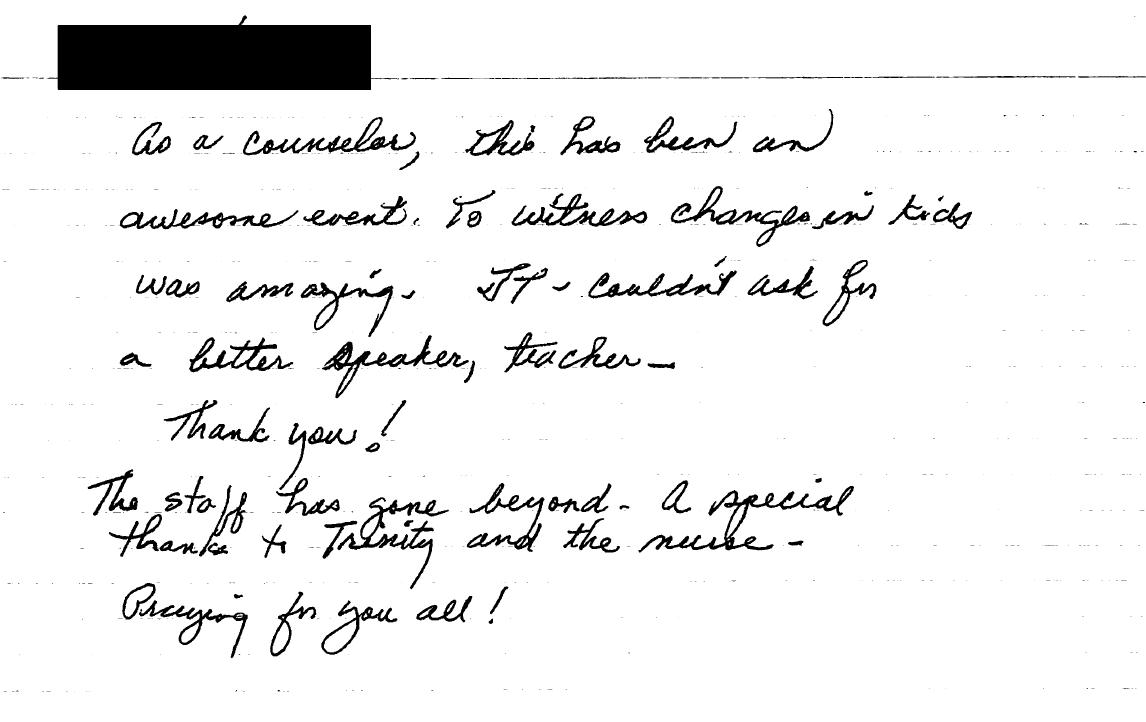 As a counselor, this has been an
awesome event. To witness changes in kids
was amazing. JT - couldn't ask for
a better speaker, teacher —
Thank you!
The staff has gone beyond - A special
thanks to Trinity and the nurse -
Praying for you all!